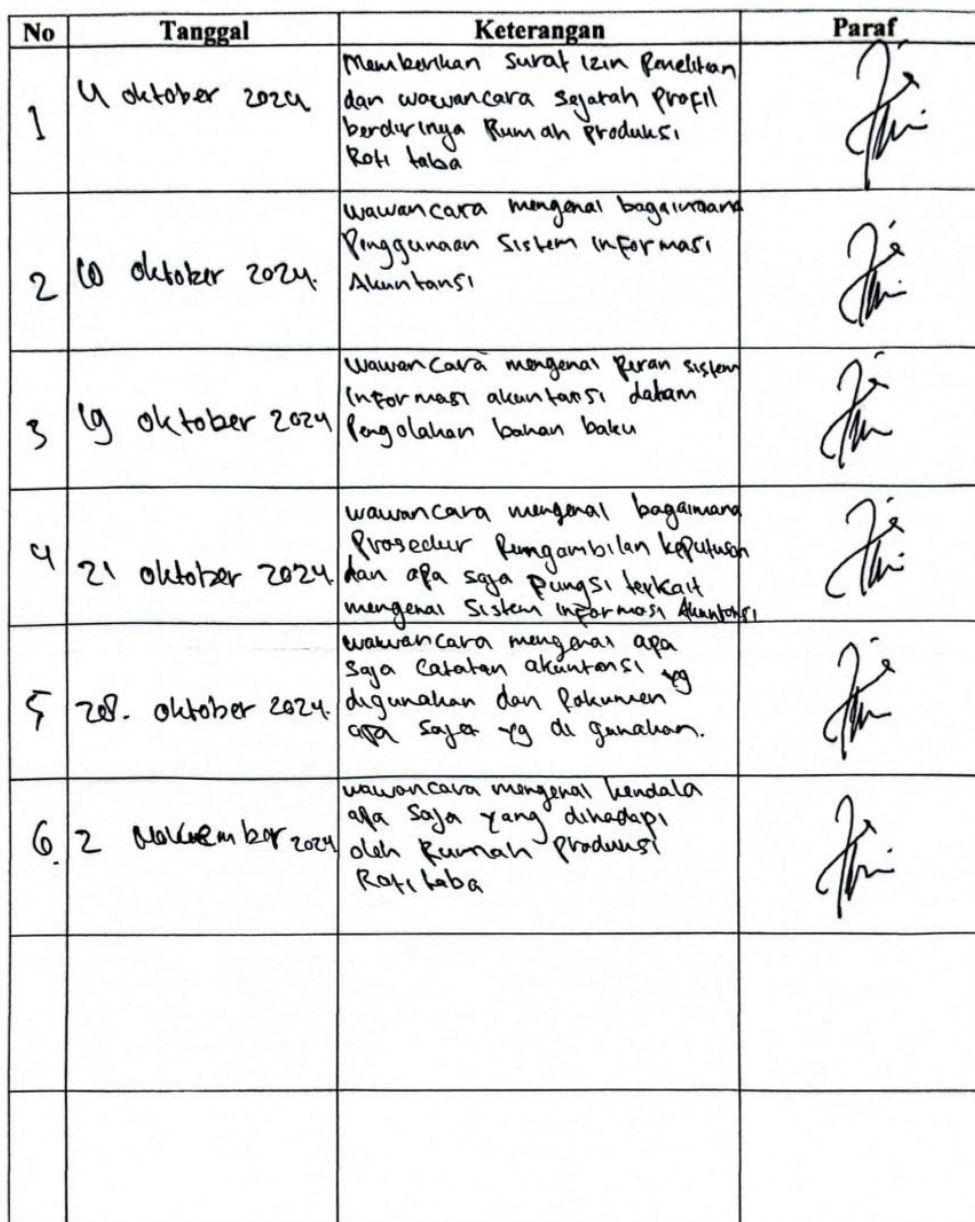 No Tanggal Keterangan Paraf
1 4 oktober 2024
Memberikan surat izin Penelitian
dan wawancara sejarah profil
berdirinya Rumah produksi
Roti taba
2 10 oktober 2024.
wawancara mengenai bagaimana
Penggunaan Sistem informasi
Akuntansi
3 19 oktober 2024
wawancara mengenai Peran sistem
informasi akuntansi dalam
Pengolahan bahan baku
4 21 oktober 2024.
wawancara mengenai bagaimana
Prosedur Pengambilan keputusan
dan apa saja pungsi terkait
mengenai Sistem informasi Akuntansi
5 28. oktober 2024.
wawancara mengenai apa
saja Catatan akuntansi yg
digunakan dan Dokumen
apa saja yg di gunakan.
6. 2 November 2024
wawancara mengenai kendala
apa saja yang dihadapi
oleh Rumah Produksi
Roti taba